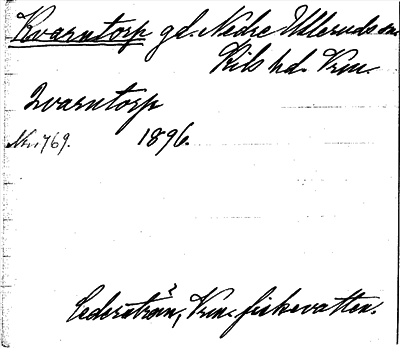 Kvarntorp gd. Nedre Ullerud sn.
Kils hd. Vrm.
Qvarntorp
No. 1769. 1896.
Cederström, Vrm. fiskevatten.